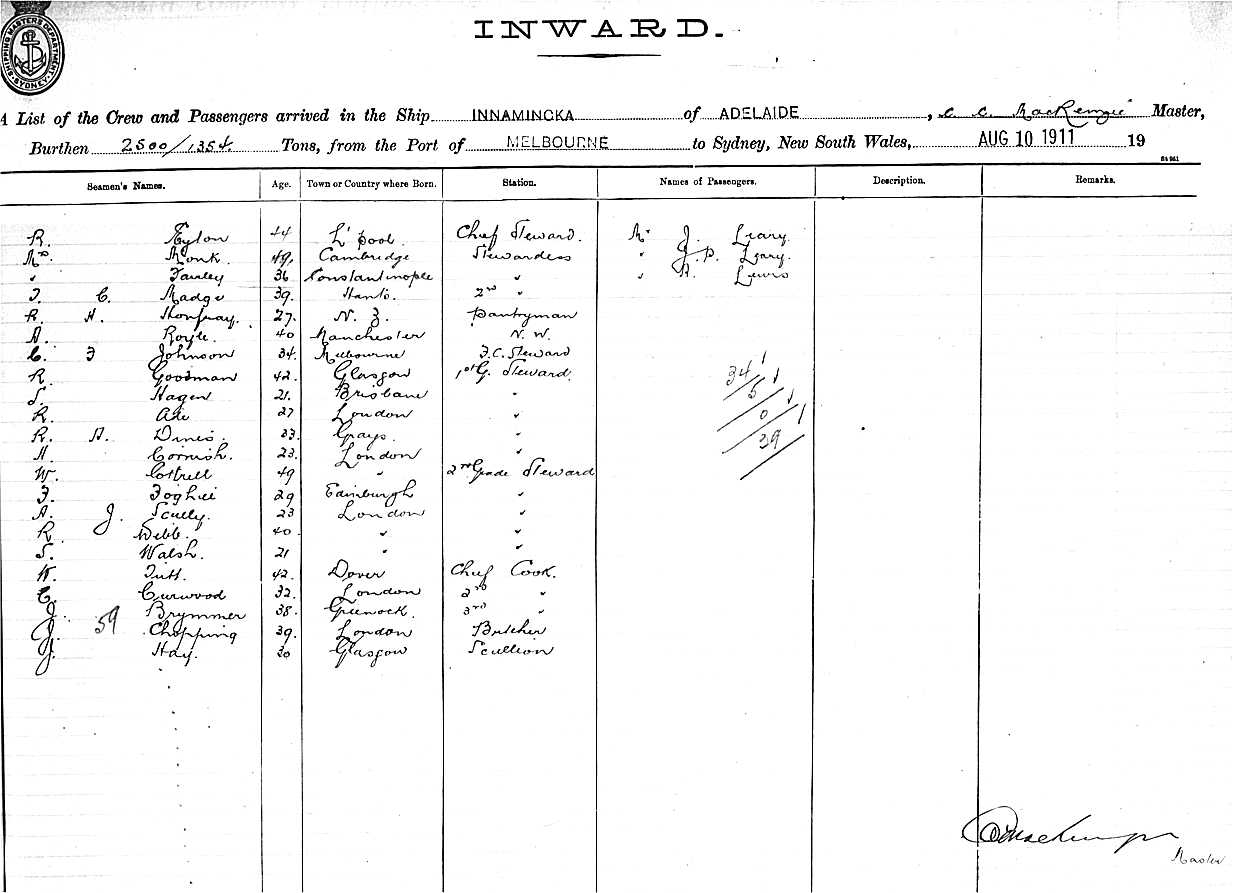 SHIPPING MASTERS DEPARTMENT SYDNEY
INWARD.
A List of the Crew and Passengers arrived in the Ship INNAMINCKA of ADELAIDE, C. C. MacKenzie Master,
Burthen 2500/1354 Tons, from the Port of MELBOURNE to Sydney, New South Wales, AUG 10 1911 19
Seamen's Names. Age. Town or Country where Born. Station. Names of Passengers. Description. Remarks.
R. Eyton 44 L'pool. Chief Steward. Mr J. Leary.
Mrs. Monk. 49. Cambridge Stewardess " J. P. Leary.
" 36 Constantinople " " A. Lewis
F. C. Madge 39. Hants. 2nd "
R. H. 27. N. Z. Pantryman
A. Royle. 40 Manchester N. W.
C. F Johnson 34. Melbourne F. C. Steward
R Goodman 42. Glasgow 1st G. Steward. 34 / 1
S. Hagen 21. Brisbane " 5 / 1
R. 27 London " 0 / 1
R. A. Dines. 33. Grays. " 39
H. Cornish. 23. London "
W. Cottrell 49 " 2nd Grade Steward
F. 29 Edinburgh "
A. J. Scully. 23 London "
R Webb. 40 " "
S. Walsh. 21 " "
W. Tutt. 42. Dover Chief Cook.
C. Curwood 32. London 2nd "
J. Brymmer 38. Greenock. 3rd "
J. 59 Chopping 39. London Butcher
J. Hay. 30 Glasgow Scullion
CC MacKenzie
Master